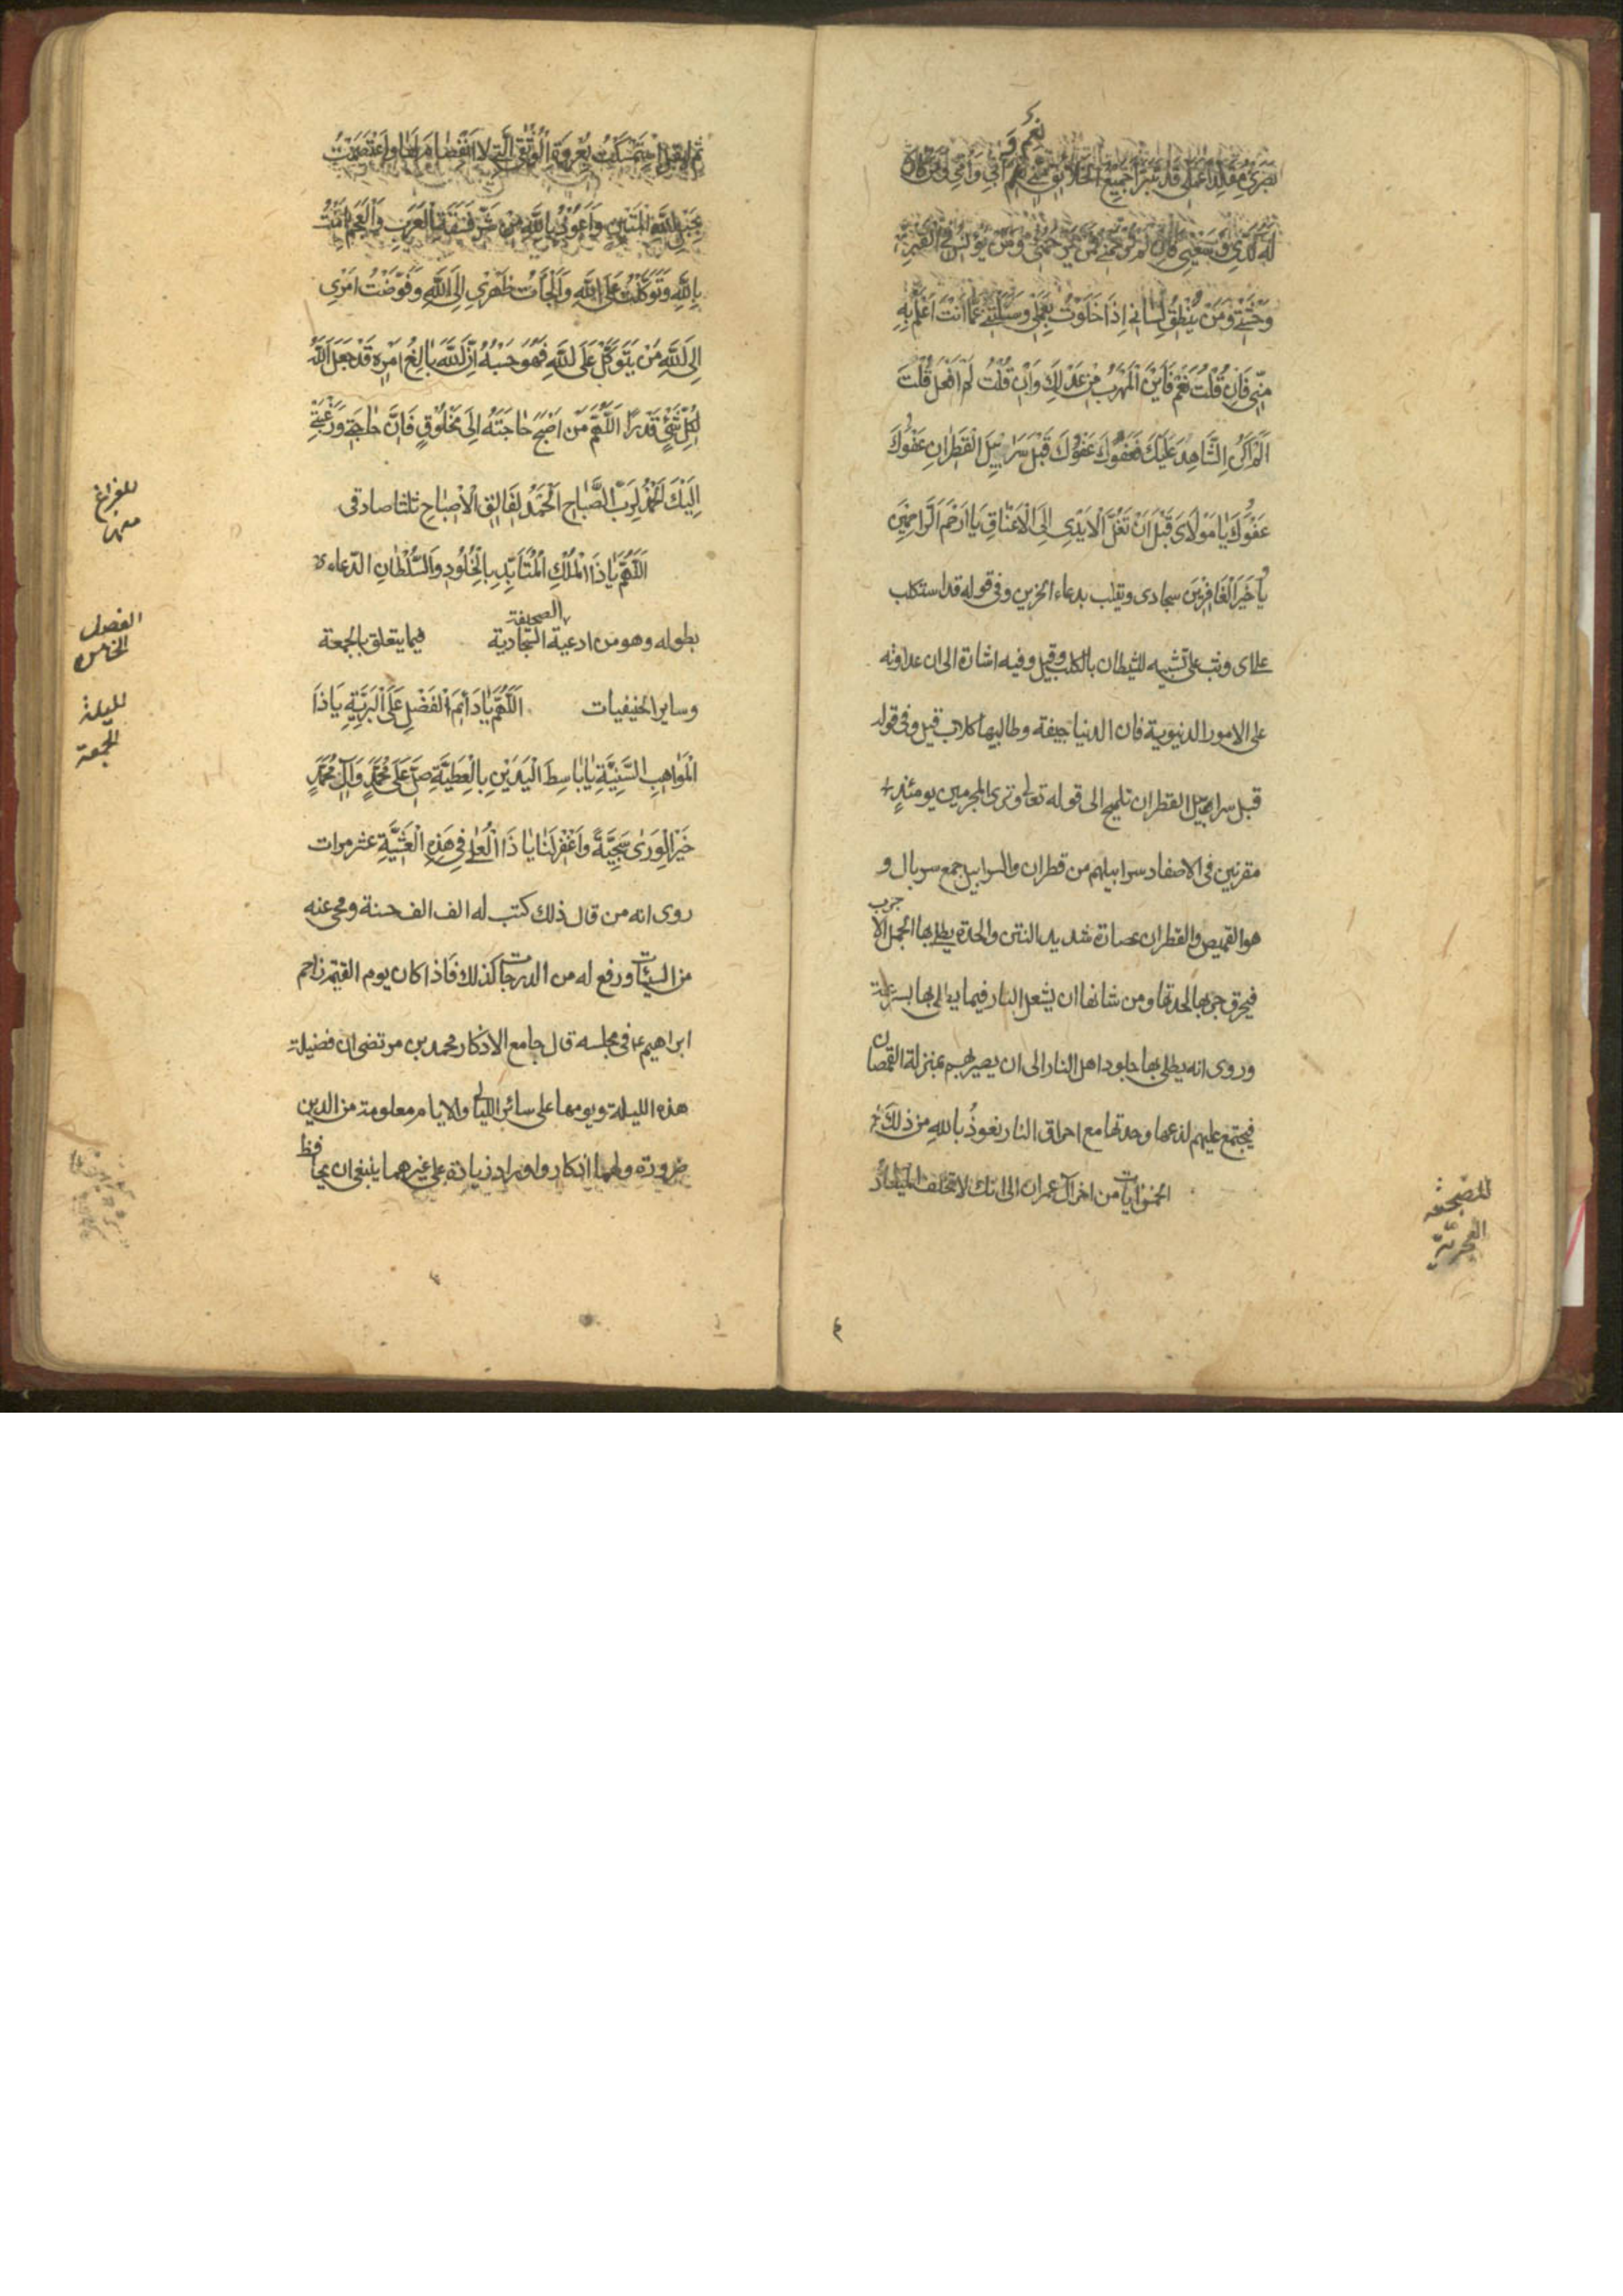 بَصَرى مُقَلَّدًا عَمَلى قَد تَبَرَّأ جَميعُ الخَلائِقِ مِنّى نَعَم و اَبى وَاُمّى وَمَن كانَ
لَهُ كَدّى وَسَعْيى فَاِن لَم تَرحَمنى فَمَن يَرحَمُنى وَمَن يُونِسُ فِى القَبرِ
وَحشَتى وَمَن يُنطِقُ لِسانى اِذا خَلَوتُ بِعَمَلى وَسَئَلتَنى عَمّا اَنتَ اَعلَمُ بِهِ
مِنّى فَاِن قُلتُ نَعَم فَاَينَ المَهرَبُ مِن عَدلِكَ وَاِن قُلتُ لَم اَفعَل قُلتَ
اَلَم اَكُنِ الشّاهِدَ عَلَيكَ فَعَفوَكَ عَفوَكَ قَبلَ سَرابيلِ القَطِرانِ عَفوَكَ
عَفوَكَ يا مَولاىَ قَبلَ اَن تُغَلَّ الاَيدى اِلَى الاَعناقِ يا اَرحَمَ الرّاحِمينَ
وَيا خَيرَ الغافِرينَ سجادى ويقلب بدعاء الحزين وفى قوله قد استكلب
على اى وثب على تشبيه للشيطان بالكلب وقيل وفيه اشارة الى ان عداوته
على الامور الدنيوية فان الدنيا جيفة وطالبيها كلاب قيل وفى قوله
قبل سرابيل القطران تلميح الى قوله تعالى وترى المجرمين يومئذٍ
مقرنين فى الاصفاد سرابيلهم من قطران والسرابيل جمع سربال و
هو القميص والقطران عصارة شديد النتن والحدة يطلى بها الجمل الاجرب
فيحرق جربها لحدتها ومن شانها ان يشعل النار فيما يطلى بها بسرعة
وروى انه يطلى بها جلود اهل النار الى ان يصير لهم بمنزلة القمصان
فيجتمع عليهم لذعها وحدتها مع احراق النار نعوذُ باللهِ من ذلك
الخمس ايات من اخر آل عمران الى انك لا تخلف الميعاد
للضجعة
الفجرية
ثم ليقل اِستَمسَكتُ بِعُروَةِ الوُثقى الَّتى لاَ انفِصامَ لَها وَاعتَصَمتُ
بِحَبلِ اللهِ المَتينِ وَاَعُوذُ بِاللهِ مِن شَرِّ فَسَقَةِ العَرَبِ وَالعَجَمِ امَنتُ
بِاللهِ وَتَوَكَّلتُ عَلَى اللهِ وَاَلجَأتُ ظَهرى اِلَى اللهِ وَفَوَّضتُ اَمرى
اِلَى اللهِ مَن يَتَوَكَّل عَلَى اللهِ فَهُوَ حَسبُهُ اِنَّ اللهَ بالِغُ اَمرِهِ قَد جَعَلَ اللهُ
لِكُلِّ شَىءٍ قَدرًا اَللّهُمَّ مَن اَصبَحَ حاجَتُهُ اِلى مَخلُوقٍ فَاِنَّ حاجَتى وَرَغبَتى
اِلَيكَ اَلحَمدُ لِرَبِّ الصَّباحِ اَلحَمدُ لِفالِقِ الاِصباحِ ثلثا صادقى
للفراغ
منها
اَللّهُمَّ يا ذَا المُلكِ المُتَاَبِّدِ بِالخُلُودِ وَالسُّلطانِ الدعاء
بطوله وهو من ادعية الصحيفة السجادية فيما يتعلق بالجمعة
الفصل
الخامس
وساير الحنيفيات اَللّهُمَّ يا دائِمَ الفَضلِ عَلَى البَرِيَّةِ يا ذَا
لليلة
الجمعة
المَواهِبِ السَّنِيَّةِ يا باسِطَ اليَدَينِ بِالعَطِيَّةِ صَلِّ عَلى مُحَمَّدٍ وَآلِ مُحَمَّدٍ
خَيرِ الوَرى سَجِيَّةً وَاغفِر لَنا يا ذَا العُلى فى هذِهِ العَشِيَّةِ عشر مرات
روى انه من قال ذلك كتب له الف الف حسنة ومحى عنه
من السيئات ورفع له من الدرجات كذلك فاذا كان يوم القيمة زاحم
ابراهيم ع فى مجلسه قال جامع الاذكار محمد بن مرتضى ان فضيلة
هذه الليلة ويومها على سائر الليالى والايام معلومة من الدين
ضرورة ولهما اذكار واوراد زيادة على غيرهما ينبغى ان يحافظ